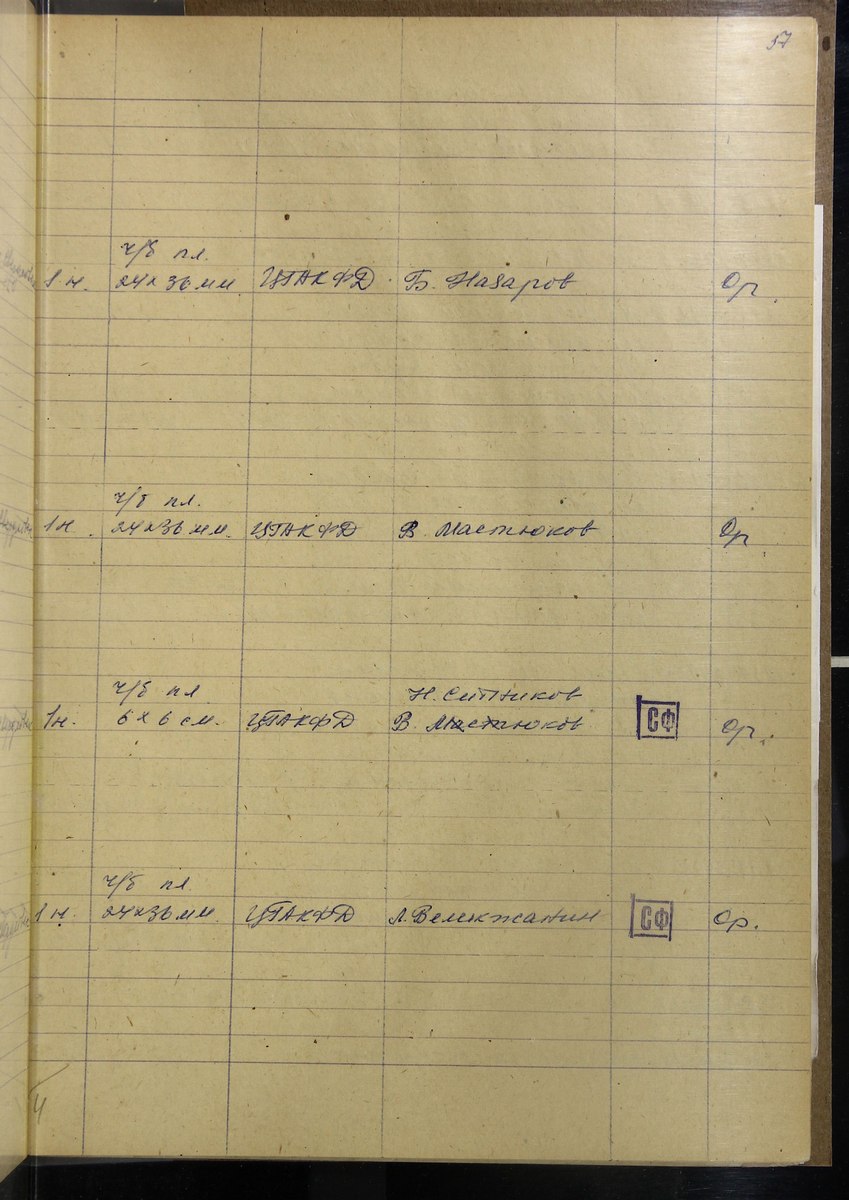 57
ч/б пл.
1 н. 24×36 мм. ЦГАКФД Б. Назаров Ор.
ч/б пл.
1 н. 24×36 мм. ЦГАКФД В. Мастюков Ор
ч/б пл Н. Ситников
1 н. 6×6 см. ЦГАКФД В. Мастюков СФ Ор.
ч/б пл
1 н. 24×36 мм. ЦГАКФД Л. Великжанин СФ Ор.
4